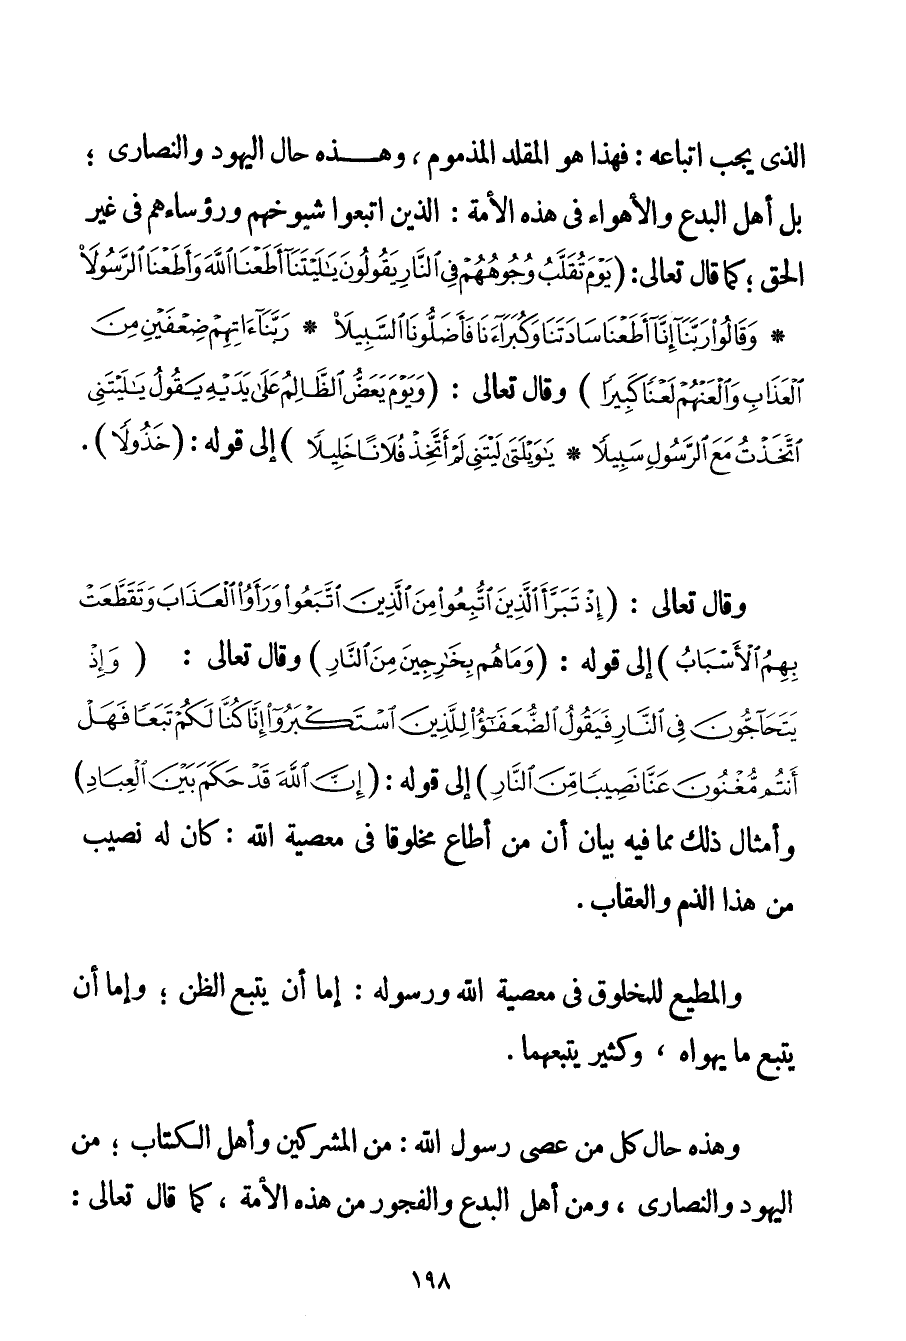 الذى يجب اتباعه : فهذا هو المقلد المذموم ، وهـــذه حال اليهود والنصارى ؛
بل أهل البدع والأهواء فى هذه الأمة : الذين اتبعوا شيوخهم ورؤساءهم فى غير
الحق ؛ كما قال تعالى: (يَوْمَ تُقَلَّبُ وُجُوهُهُمْ فِي ٱلنَّارِ يَقُولُونَ يَٰلَيْتَنَآ أَطَعْنَا ٱللَّهَ وَأَطَعْنَا ٱلرَّسُولَا۠
* وَقَالُوا۟ رَبَّنَآ إِنَّآ أَطَعْنَا سَادَتَنَا وَكُبَرَآءَنَا فَأَضَلُّونَا ٱلسَّبِيلَا۠ * رَبَّنَآ ءَاتِهِمْ ضِعْفَيْنِ مِنَ
ٱلْعَذَابِ وَٱلْعَنْهُمْ لَعْنًا كَبِيرًا ) وقال تعالى : (وَيَوْمَ يَعَضُّ ٱلظَّالِمُ عَلَىٰ يَدَيْهِ يَقُولُ يَٰلَيْتَنِي
ٱتَّخَذْتُ مَعَ ٱلرَّسُولِ سَبِيلًا * يَٰوَيْلَتَىٰ لَيْتَنِي لَمْ أَتَّخِذْ فُلَانًا خَلِيلًا ) إلى قوله : (خَذُولًا) .
وقال تعالى : (إِذْ تَبَرَّأَ ٱلَّذِينَ ٱتُّبِعُوا۟ مِنَ ٱلَّذِينَ ٱتَّبَعُوا۟ وَرَأَوُا۟ ٱلْعَذَابَ وَتَقَطَّعَتْ
بِهِمُ ٱلْأَسْبَابُ ) إلى قوله : (وَمَا هُم بِخَٰرِجِينَ مِنَ ٱلنَّارِ ) وقال تعالى : ( وَإِذْ
يَتَحَآجُّونَ فِي ٱلنَّارِ فَيَقُولُ ٱلضُّعَفَٰٓؤُا۟ لِلَّذِينَ ٱسْتَكْبَرُوٓا۟ إِنَّا كُنَّا لَكُمْ تَبَعًا فَهَلْ
أَنتُم مُّغْنُونَ عَنَّا نَصِيبًا مِّنَ ٱلنَّارِ ) إلى قوله : (إِنَّ ٱللَّهَ قَدْ حَكَمَ بَيْنَ ٱلْعِبَادِ)
وأمثال ذلك مما فيه بيان أن من أطاع مخلوقا فى معصية الله : كان له نصيب
من هذا الذم والعقاب .
والمطيع للمخلوق فى معصية الله ورسوله : إما أن يتبع الظن ؛ وإما أن
يتبع ما يهواه ، وكثير يتبعهما .
وهذه حال كل من عصى رسول الله : من المشركين وأهل الكتاب ؛ من
اليهود والنصارى ، ومن أهل البدع والفجور من هذه الأمة ، كما قال تعالى :
١٩٨